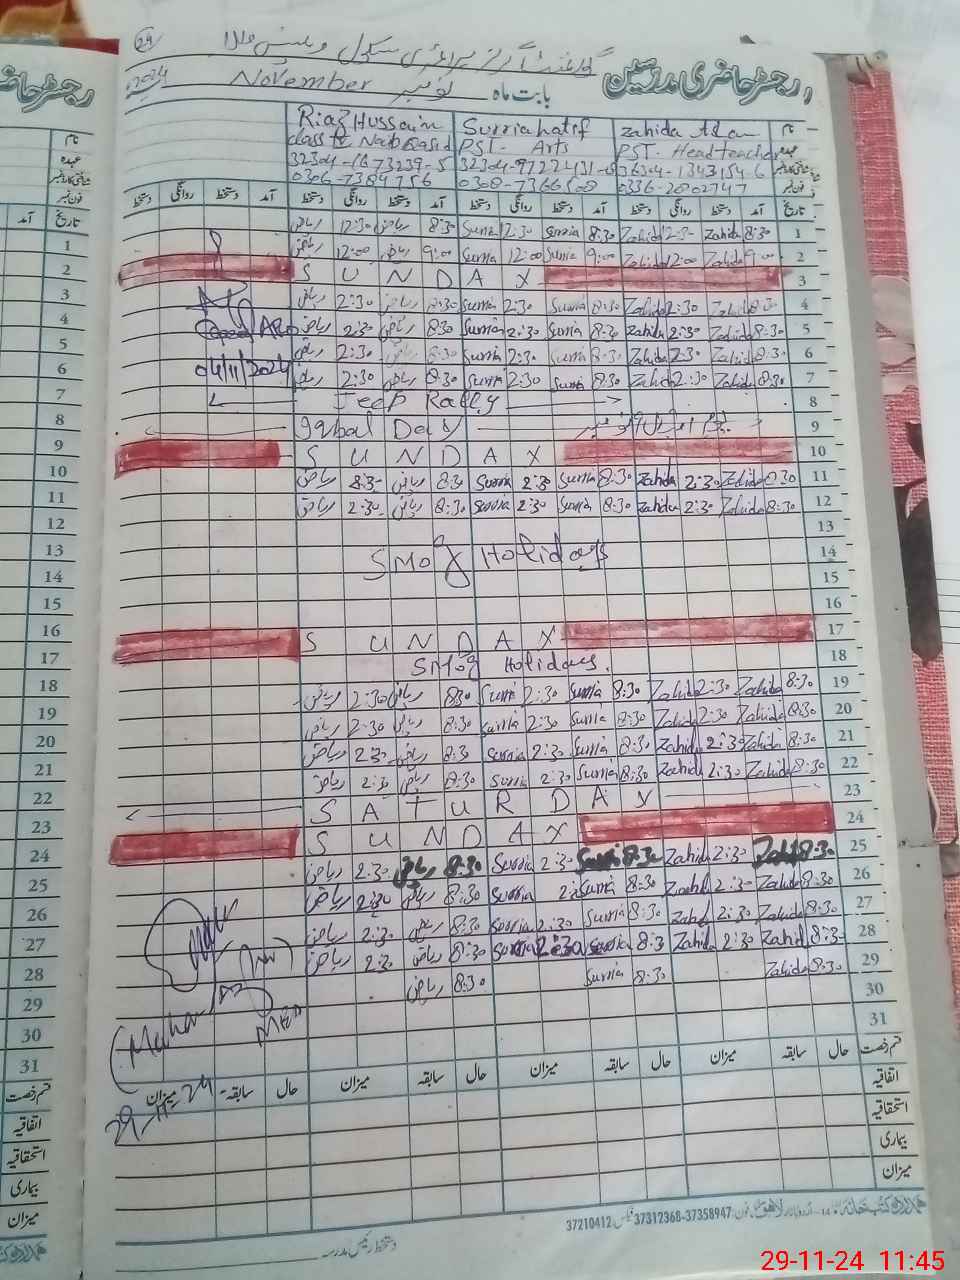 29
گورنمنٹ گرلز پرائمری سکول
رجسٹر حاضری مدرسین
بابت ماہ نومبر November 2024
نام Zahida Surria Riaz Hussain
عہدہ PST. Headteacher PST- Arts class
شناختی کارڈ نمبر
فون نمبر 0336-2802747 0308-7366508 0306-7384756
تاریخ آمد دستخط روانگی دستخط آمد دستخط روانگی دستخط آمد دستخط روانگی دستخط آمد دستخط روانگی دستخط
1 8:30 Zahida 12:30 Zahida 8:30 Surria 12:30 Surria 8:30 ریاض 12:30 ریاض
2 9:00 Zahida 12:00 Zahida 9:00 Surria 12:00 Surria 9:00 ریاض 12:00 ریاض
3 S U N D A Y
4 8:30 Zahida 2:30 Zahida 8:30 Surria 2:30 Surria 8:30 ریاض 2:30 ریاض
5 8:30 Zahida 2:30 Zahida 8:30 Surria 2:30 Surria 8:30 ریاض 2:30 ریاض
6 8:30 Zahida 2:30 Zahida 8:30 Surria 2:30 Surria 8:30 ریاض 2:30 ریاض
04/11/2024
7 8:30 Zahida 2:30 Zahida 8:30 Surria 2:30 Surria 8:30 ریاض 2:30 ریاض
8 Jeep Rally
9 Iqbal Day
10 S U N D A Y
11 8:30 Zahida 2:30 Zahida 8:30 Surria 2:30 Surria 8:30 ریاض 8:30 ریاض
12 8:30 Zahida 2:30 Zahida 8:30 Surria 2:30 Surria 8:30 ریاض 2:30 ریاض
13
14 Smog Holidays
15
16
17 S U N D A Y
18 Smog Holidays.
19 8:30 Zahida 2:30 Zahida 8:30 Surria 2:30 Surria 8:30 ریاض 2:30 ریاض
20 8:30 Zahida 2:30 Zahida 8:30 Surria 2:30 Surria 8:30 ریاض 2:30 ریاض
21 8:30 Zahida 2:30 Zahida 8:30 Surria 2:30 Surria 8:30 ریاض 2:30 ریاض
22 8:30 Zahida 2:30 Zahida 8:30 Surria 2:30 Surria 8:30 ریاض 2:30 ریاض
23 S A T U R D A Y
24 S U N D A Y
25 8:30 Zahida 2:30 Zahida 8:30 Surria 2:30 Surria 8:30 ریاض 2:30 ریاض
26 8:30 Zahida 2:30 Zahida 8:30 Surria Surria 8:30 ریاض 2:30 ریاض
27 8:30 Zahida 2:30 Zahida 8:30 Surria 2:30 Surria 8:30 ریاض 2:30 ریاض
28 8:30 Zahida 2:30 Zahida 8:3 Surria 2:30 Surria 8:30 ریاض 2:30 ریاض
29 8:30 Zahida 8:30 Surria 8:30 ریاض
30
31
قسم رخصت حال سابقہ میزان حال سابقہ میزان حال سابقہ میزان حال سابقہ میزان
29-11-24
اتفاقیہ
استحقاقیہ
بیماری
میزان
ہمدرد کتب خانہ لاہور فون: 37312368-37358947 فیکس: 37210412
دستخط رئیس مدرسہ
رجسٹر حاضری
نام
عہدہ
شناختی کارڈ نمبر
فون نمبر
تاریخ آمد
1
2
3
4
5
6
7
8
9
10
11
12
13
14
15
16
17
18
19
20
21
22
23
24
25
26
27
28
29
30
31
قسم رخصت
اتفاقیہ
استحقاقیہ
بیماری
میزان
29-11-24 11:45